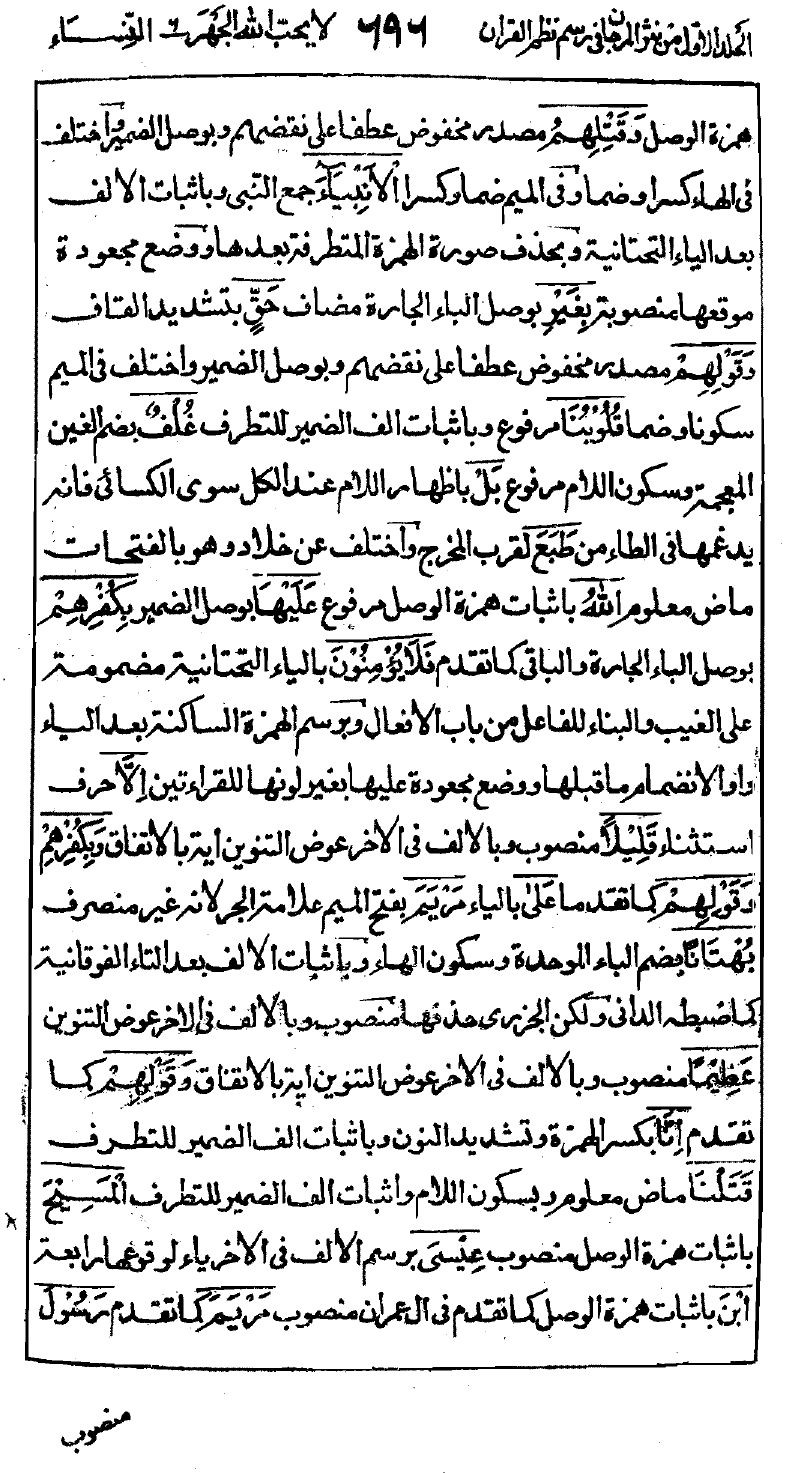 الجلد الاول من نثر المرجان فى رسم نظم القران ٦٩٦ لا يحب الله الجهر ٦ النساء
همزة الوصل وَقَتْلِهِمُ مصدر مخفوض عطفا على نقضهم وبوصل الضمير واختلف
فى الهاء كسرا وضما وفى الميم ضما وكسرا الْاَنْبِيَآءَ جمع النبى وباثبات الالف
بعد الياء التحتانية وبحذف صورة الهمزة المتطرفة بعدها ووضع مجعودة
موقعها منصوبة بِغَيْرِ بوصل الباء الجارة مضاف حَقٍّ بتشديد القاف
وَقَوْلِهِمْ مصدر مخفوض عطفا على نقضهم وبوصل الضمير واختلف فى الميم
سكونا وضما قُلُوْبُنَا مرفوع وباثبات الف الضمير للتطرف غُلْفٌ بضم الغين
المعجمة وسكون اللام مرفوع بَلْ باظهار اللام عند الكل سوى الكسائى فانه
يدغمها فى الطاء من طَبَعَ لقرب المخرج واختلف عن خلاد وهو بالفتحات
ماض معلوم اللهُ باثبات همزة الوصل مرفوع عَلَيْهَا بوصل الضمير بِكُفْرِهِمْ
بوصل الباء الجارة والباقى كما تقدم فَلَا يُؤْمِنُوْنَ بالياء التحتانية مضمومة
على الغيب والبناء للفاعل من باب الافعال وبرسم الهمزة الساكنة بعد الياء
واوا لانضمام ما قبلها ووضع مجعودة عليها بغير لونها للقراءتين اِلَّا حرف
استثناء قَلِيْلًا منصوب وبالالف فى الاخر عوض التنوين اية بالاتفاق وَبِكُفْرِهِمْ
وَقَوْلِهِمْ كما تقدما عَلٰى بالياء مَرْيَمَ بفتح الميم علامة الجر لانه غير منصرف
بُهْتَانًا بضم الباء الموحدة وسكون الهاء وباثبات الالف بعد التاء الفوقانية
كما ضبطه الدانى ولكن الجزرى حذفها منصوب وبالالف فى الاخر عوض التنوين
عَظِيْمًا منصوب وبالالف فى الاخر عوض التنوين اية بالاتفاق وَقَوْلِهِمْ كما
تقدم اِنَّا بكسر الهمزة وتشديد النون وباثبات الف الضمير للتطرف
قَتَلْنَا ماض معلوم وبسكون اللام واثبات الف الضمير للتطرف الْمَسِيْحَ
باثبات همزة الوصل منصوب عِيْسَى برسم الالف فى الاخر ياء لوقوعها رابعة
ابْنَ باثبات همزة الوصل كما تقدم فى ال عمران منصوب مَرْيَمَ كما تقدم رَسُوْلَ
منصوب